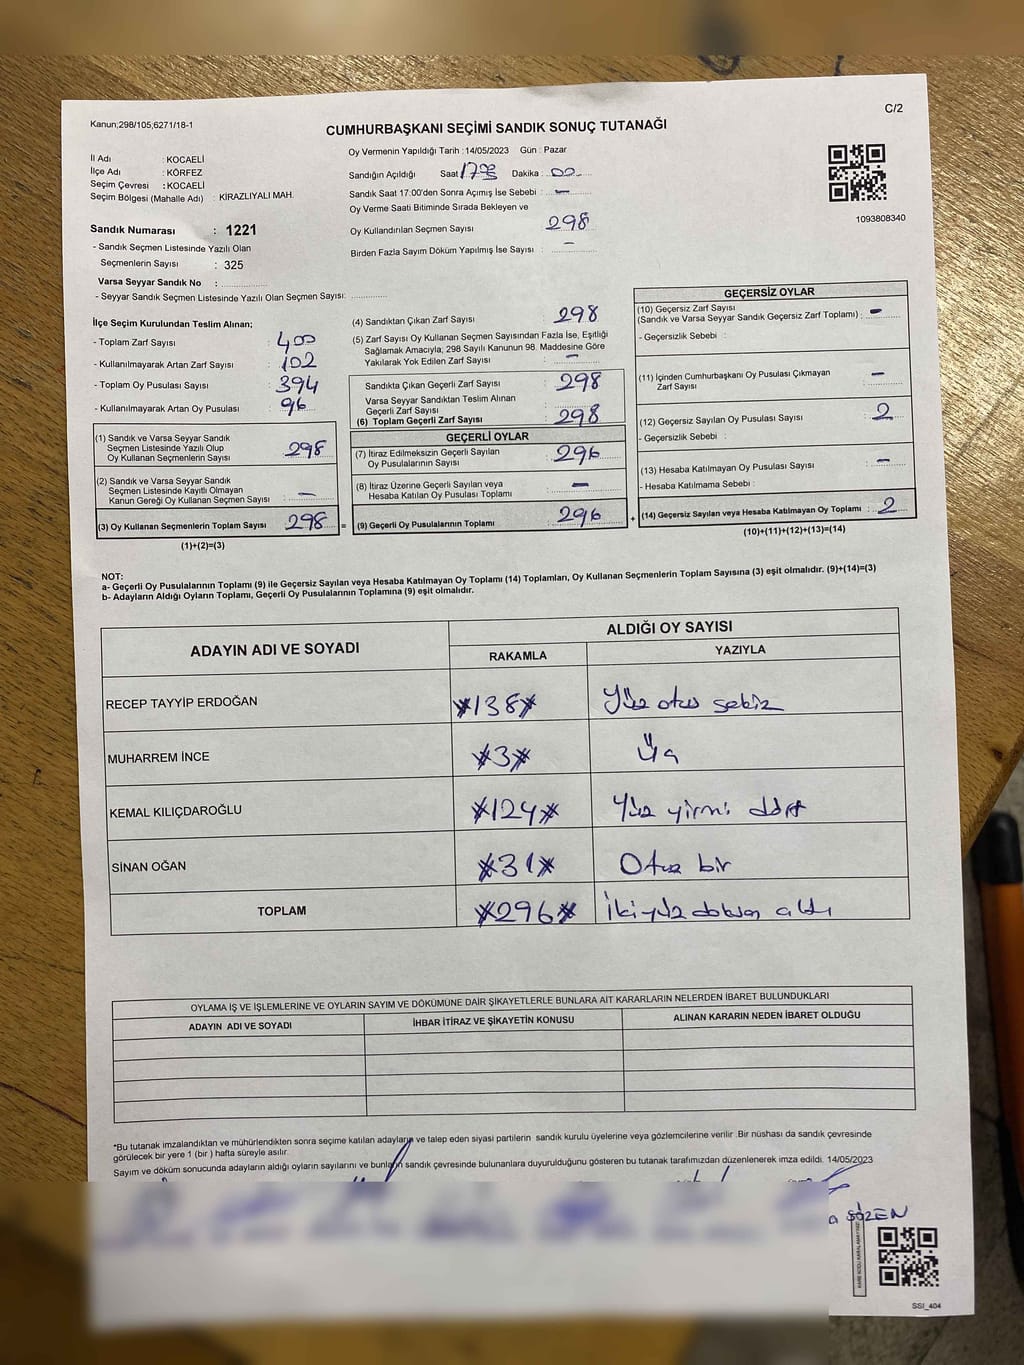 C/2
Kanun;298/105;6271/18-1
CUMHURBAŞKANI SEÇİMİ SANDIK SONUÇ TUTANAĞI
İl Adı : KOCAELİ
İlçe Adı : KÖRFEZ
Seçim Çevresi : KOCAELİ
Seçim Bölgesi (Mahalle Adı) : KİRAZLIYALI MAH.
Oy Vermenin Yapıldığı Tarih : 14/05/2023 Gün : Pazar
Sandığın Açıldığı Saat Dakika : 00
Sandık Saat 17:00'den Sonra Açımış İse Sebebi : -
Oy Verme Saati Bitiminde Sırada Bekleyen ve
Oy Kullandırılan Seçmen Sayısı 298
Birden Fazla Sayım Döküm Yapılmış İse Sayısı : -
1093808340
Sandık Numarası : 1221
- Sandık Seçmen Listesinde Yazılı Olan
Seçmenlerin Sayısı : 325
Varsa Seyyar Sandık No : ................
- Seyyar Sandık Seçmen Listesinde Yazılı Olan Seçmen Sayısı: ............
İlçe Seçim Kurulundan Teslim Alınan;
- Toplam Zarf Sayısı : 400
- Kullanılmayarak Artan Zarf Sayısı : 102
- Toplam Oy Pusulası Sayısı : 394
- Kullanılmayarak Artan Oy Pusulası : 96
(1) Sandık ve Varsa Seyyar Sandık
Seçmen Listesinde Yazılı Olup
Oy Kullanan Seçmenlerin Sayısı : 298
(2) Sandık ve Varsa Seyyar Sandık
Seçmen Listesinde Kayıtlı Olmayan
Kanun Gereği Oy Kullanan Seçmen Sayısı : -
(3) Oy Kullanan Seçmenlerin Toplam Sayısı : 298 =
(1)+(2)=(3)
(4) Sandıktan Çıkan Zarf Sayısı : 298
(5) Zarf Sayısı Oy Kullanan Seçmen Sayısından Fazla İse, Eşitliği
Sağlamak Amacıyla; 298 Sayılı Kanunun 98. Maddesine Göre
Yakılarak Yok Edilen Zarf Sayısı : -
Sandıkta Çıkan Geçerli Zarf Sayısı : 298
Varsa Seyyar Sandıktan Teslim Alınan
Geçerli Zarf Sayısı :
(6) Toplam Geçerli Zarf Sayısı : 298
GEÇERLİ OYLAR
(7) İtiraz Edilmeksizin Geçerli Sayılan
Oy Pusulalarının Sayısı : 296
(8) İtiraz Üzerine Geçerli Sayılan veya
Hesaba Katılan Oy Pusulası Toplamı : -
(9) Geçerli Oy Pusulalarının Toplamı : 296 +
GEÇERSİZ OYLAR
(10) Geçersiz Zarf Sayısı
(Sandık ve Varsa Seyyar Sandık Geçersiz Zarf Toplamı) : -
- Geçersizlik Sebebi :
(11) İçinden Cumhurbaşkanı Oy Pusulası Çıkmayan
Zarf Sayısı : -
(12) Geçersiz Sayılan Oy Pusulası Sayısı : 2
- Geçersizlik Sebebi :
(13) Hesaba Katılmayan Oy Pusulası Sayısı : -
- Hesaba Katılmama Sebebi :
(14) Geçersiz Sayılan veya Hesaba Katılmayan Oy Toplamı : 2
(10)+(11)+(12)+(13)=(14)
NOT:
a- Geçerli Oy Pusulalarının Toplamı (9) ile Geçersiz Sayılan veya Hesaba Katılmayan Oy Toplamı (14) Toplamları, Oy Kullanan Seçmenlerin Toplam Sayısına (3) eşit olmalıdır. (9)+(14)=(3)
b- Adayların Aldığı Oyların Toplamı, Geçerli Oy Pusulalarının Toplamına (9) eşit olmalıdır.
ADAYIN ADI VE SOYADI ALDIĞI OY SAYISI
RAKAMLA YAZIYLA
RECEP TAYYİP ERDOĞAN *138* Yüz otuz sekiz
MUHARREM İNCE *3* Üç
KEMAL KILIÇDAROĞLU *124* Yüz yirmi dört
SİNAN OĞAN *31* Otuz bir
TOPLAM *296* İkiyüz doksan altı
OYLAMA İŞ VE İŞLEMLERİNE VE OYLARIN SAYIM VE DÖKÜMÜNE DAİR ŞİKAYETLERLE BUNLARA AİT KARARLARIN NELERDEN İBARET BULUNDUKLARI
ADAYIN ADI VE SOYADI İHBAR İTİRAZ VE ŞİKAYETİN KONUSU ALINAN KARARIN NEDEN İBARET OLDUĞU
*Bu tutanak imzalandıktan ve mühürlendikten sonra seçime katılan adayların ve talep eden siyasi partilerin sandık kurulu üyelerine veya gözlemcilerine verilir .Bir nüshası da sandık çevresinde
görülecek bir yere 1 (bir ) hafta süreyle asılır.
Sayım ve döküm sonucunda adayların aldığı oyların sayılarını ve bunların sandık çevresinde bulunanlara duyurulduğunu gösteren bu tutanak tarafımızdan düzenlenerek imza edildi. 14/05/2023
a SÖZEN
SSI_404